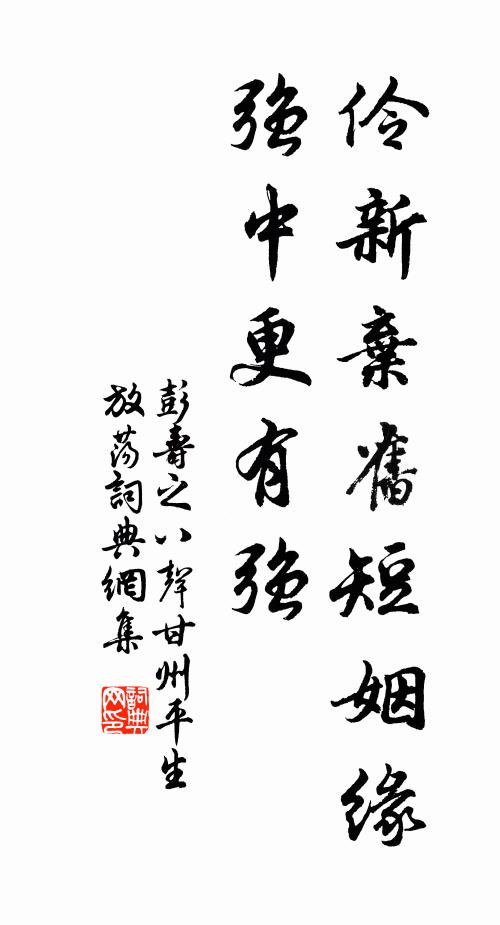 伶新棄舊短姻緣
強中更有強
彭壽之八聲甘州平生
放蕩詞典網集
詞典网印